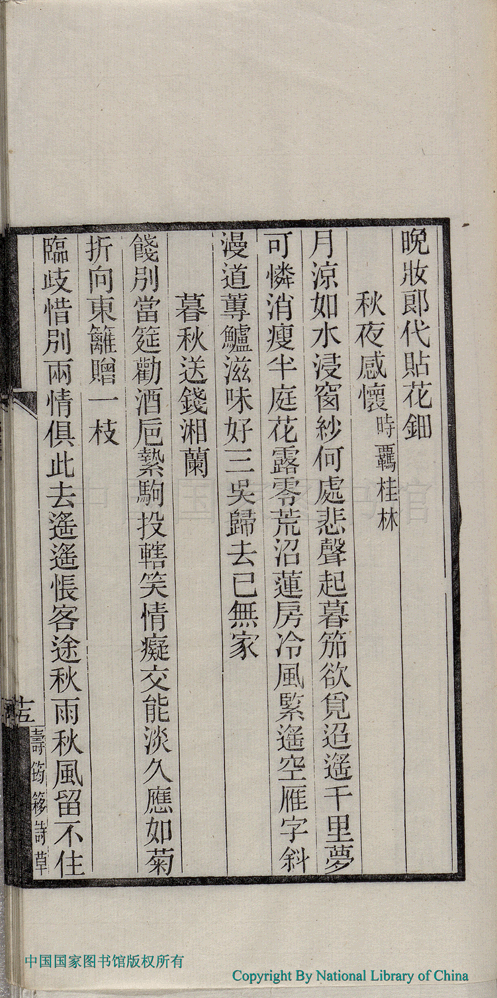 晩妝郎代貼花鈿
秋夜感懷時羈桂林
月涼如水浸窗紗何處悲聲起暮笳欲覓迢遙千里夢
可憐消瘦半庭花露零荒沼蓮房冷風緊遙空雁字斜
漫道蓴鱸滋味好三吳歸去已無家
暮秋送錢湘蘭
餞別當筵勸酒巵縶駒投轄笑情癡交能淡久應如菊
折向東籬贈一枝
臨歧惜別兩情俱此去遙遙悵客途秋雨秋風留不住
壽筠簃詩草
中国国家图书馆版权所有
Copyright By National Library of China